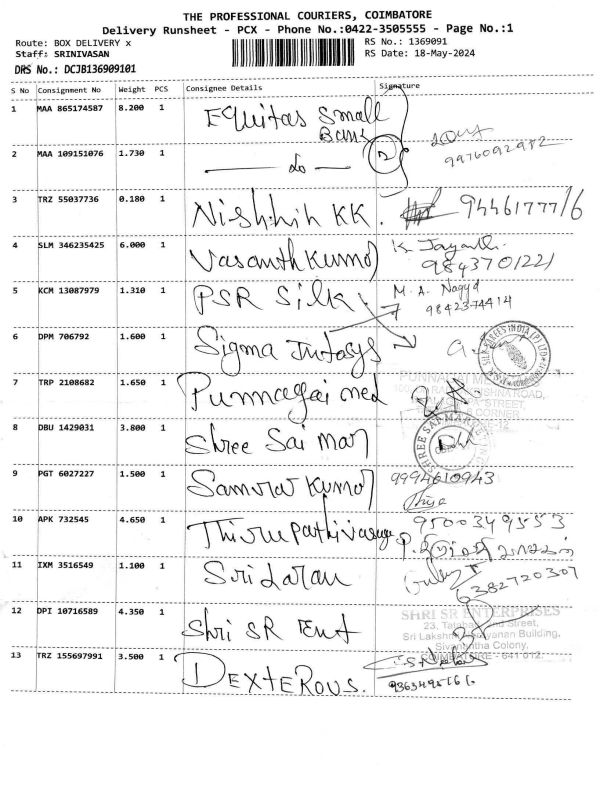 THE PROFESSIONAL COURIERS, COIMBATORE
Delivery Runsheet - PCX - Phone No.:0422-3505555 - Page No.:1
Route: BOX DELIVERY x
RS No.: 1369091
Staff: SRINIVASAN
RS Date: 18-May-2024
DRS No.: DCJB136909101
S No Consignment No Weight PCS Consignee Details Signature
1 MAA 865174587 8.200 1 Equitas Small
Bank
2 MAA 109151076 1.730 1 — do — 2
9976092982
3 TRZ 55037736 0.180 1 KK. 9446177716
4 SLM 346235425 6.000 1 Vasanth Kumar K. Jayanthi
9843701221
5 KCM 13087979 1.310 1 PSR Silk M. A.
9842374414
6 DPM 706792 1.600 1 Sigma
SILK SAREES INDIA (P) LTD
7 TRP 2108682 1.650 1 Punnagai med
8 DBU 1429031 3.800 1 Shree Sai Mar
SHREE SAI MART
9 PGT 6027227 1.500 1 Kumar 9994610943
10 APK 732545 4.650 1 9500349553
11 IXM 3516549 1.100 1 6382720307
12 DPI 10716589 4.350 1 Shri SR Ent
SHRI SR ENTERPRISES
Street,
Building,
Colony,
COIMBATORE - 641 012.
13 TRZ 155697991 3.500 1 DEXTEROUS.